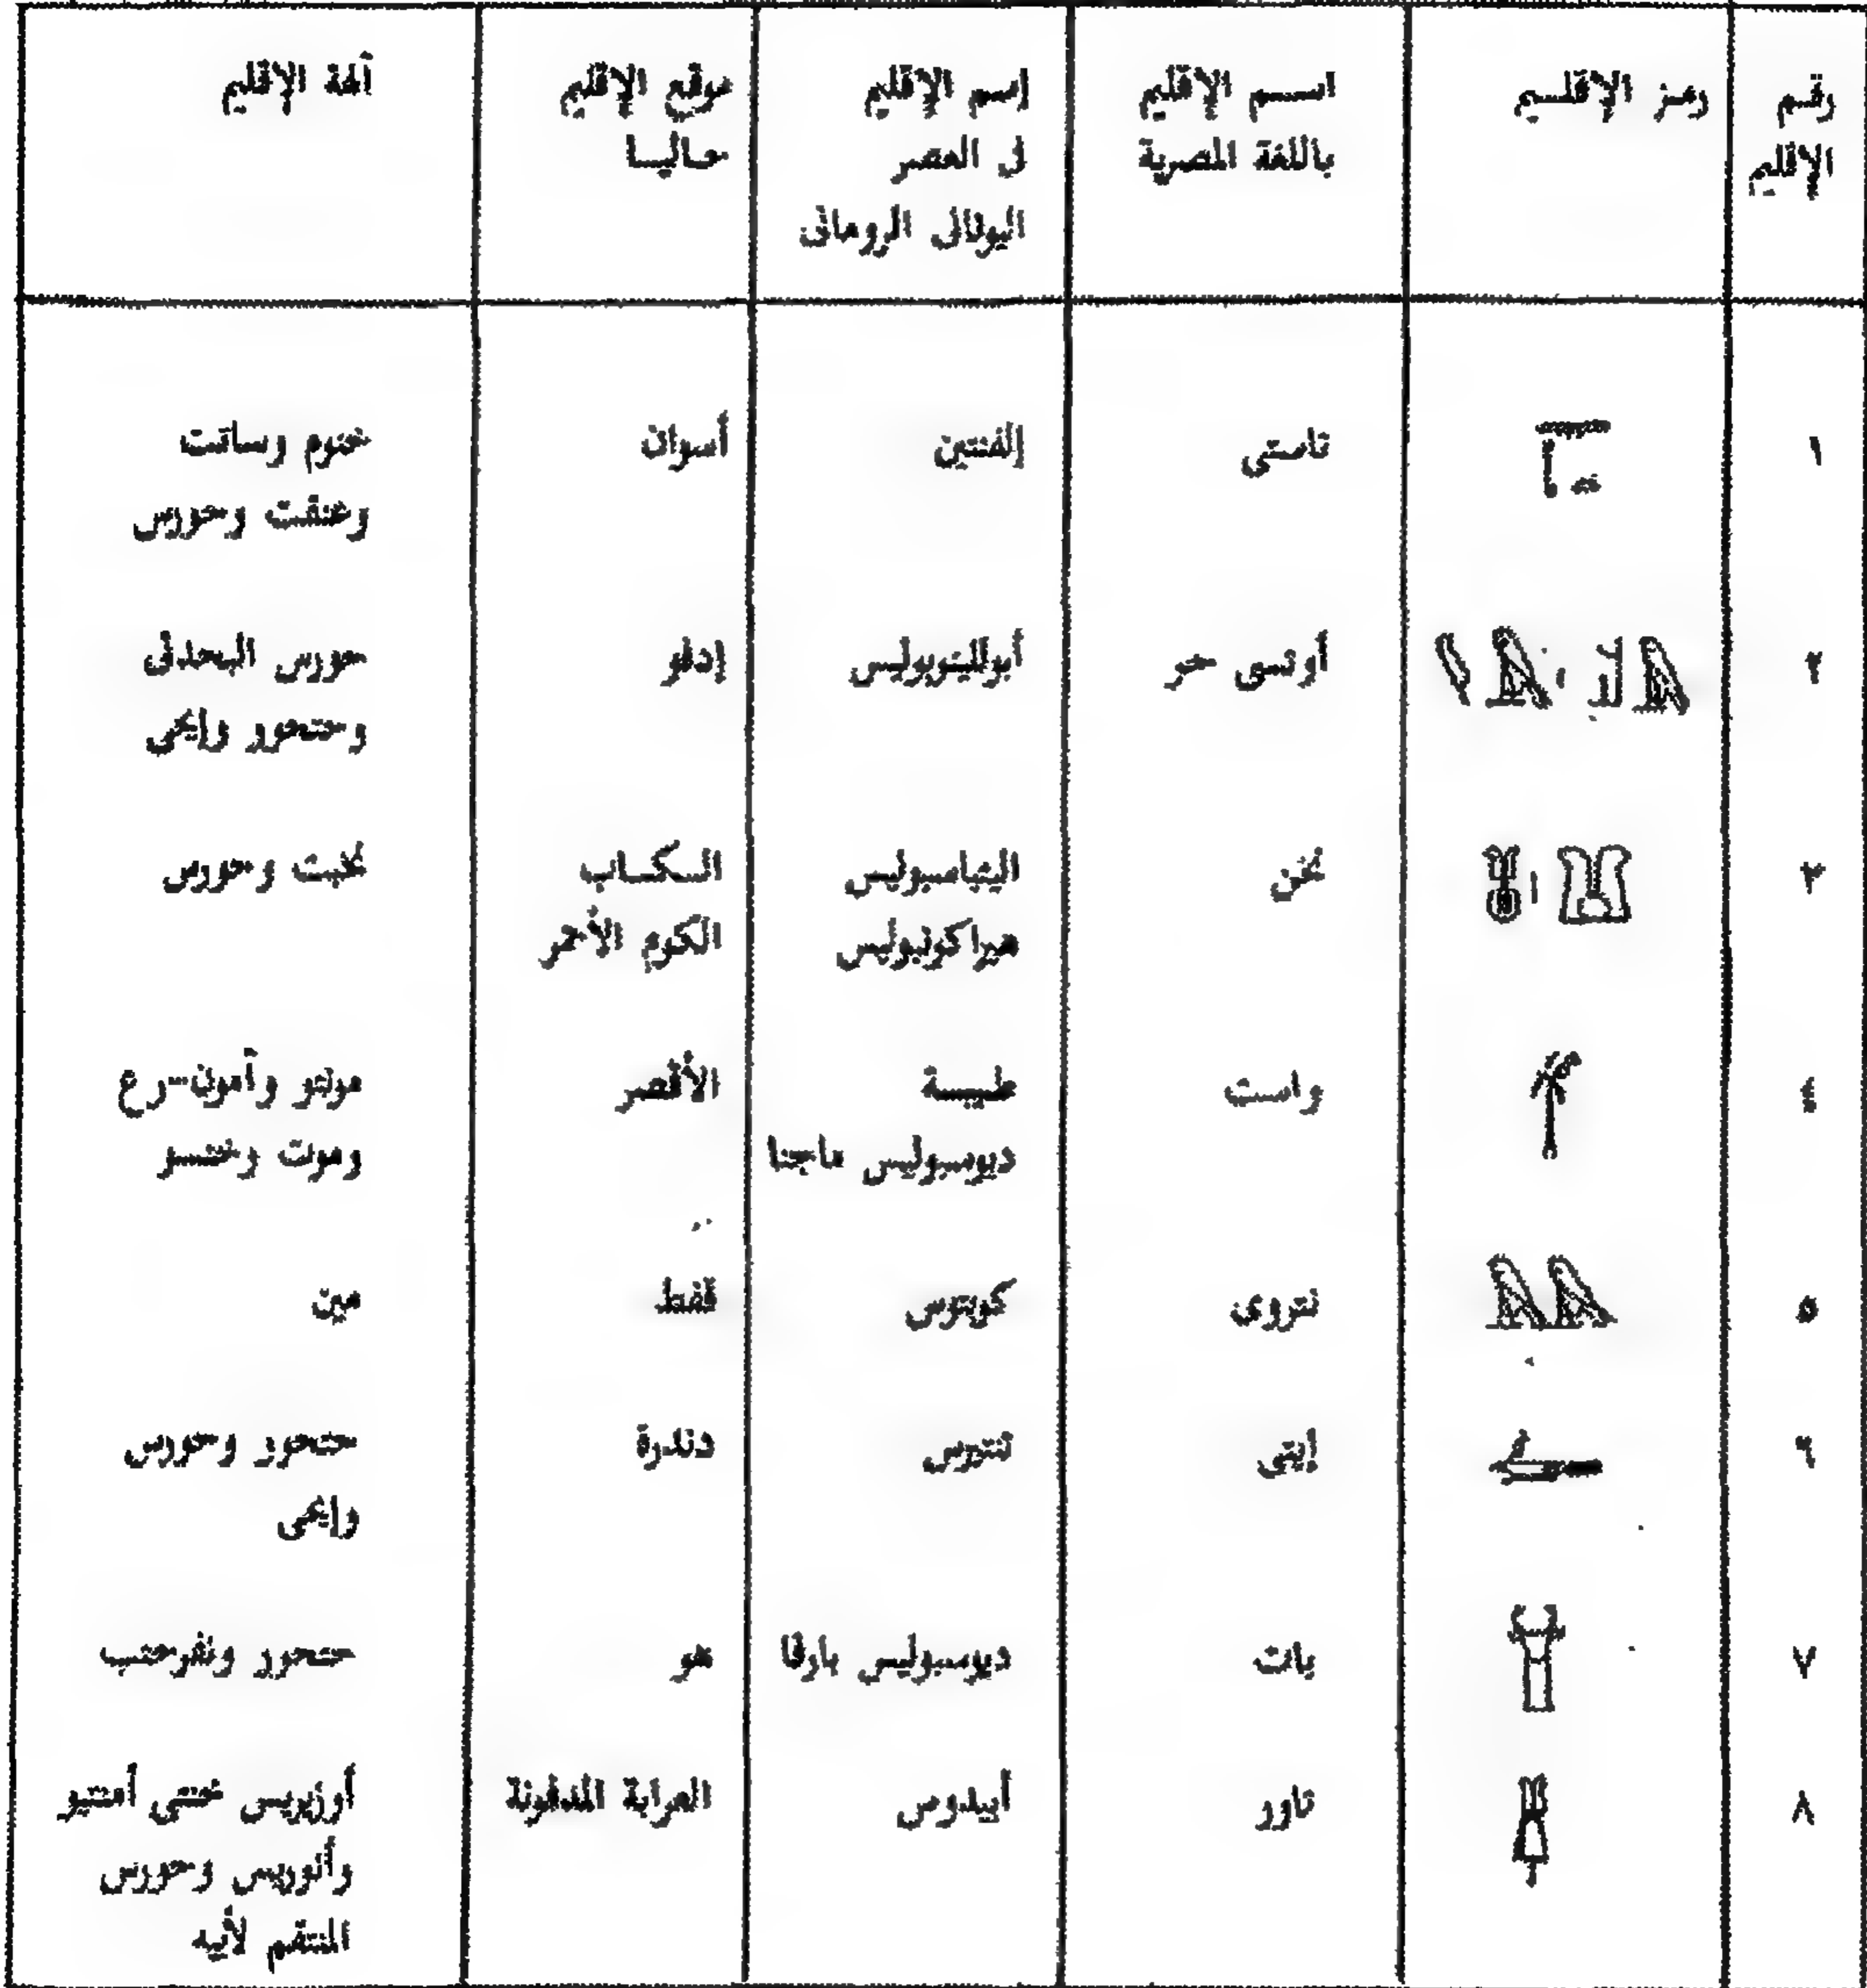 رقم الإقليم	رمز الإقليم	اسم الإقليم باللغة المصرية	إسم الإقليم فى العصر اليونانى الرومانى	موقع الإقليم حاليا	آلهة الإقليم
١	تاستى	إلفنتين	أسوان	خنوم وساتت وعنقت وحورس
٢	أوتسى حر	أبوللينوبوليس	إدفو	حورس البحدتى وحتحور وإيحى
٣	نخن	اليثياسبوليس هيراكونبوليس	السكساب الكوم الأحمر	نخبت وحورس
٤	واست	طيبة ديوسبوليس ماجنا	الأقصر	مونتو وآمون-رع وموت وخنسو
٥	نتروى	كوبتوس	قفط	مين
٦	إيتى	تنترس	دندرة	حتحور وحورس وإيحى
٧	بات	ديوسبوليس بارفا	هو	حتحور ونفرحتب
٨	تاور	أبيدوس	العرابة المدفونة	أوزيريس خنتى أمنتيو وأنوريس وحورس المنتقم لأبيه